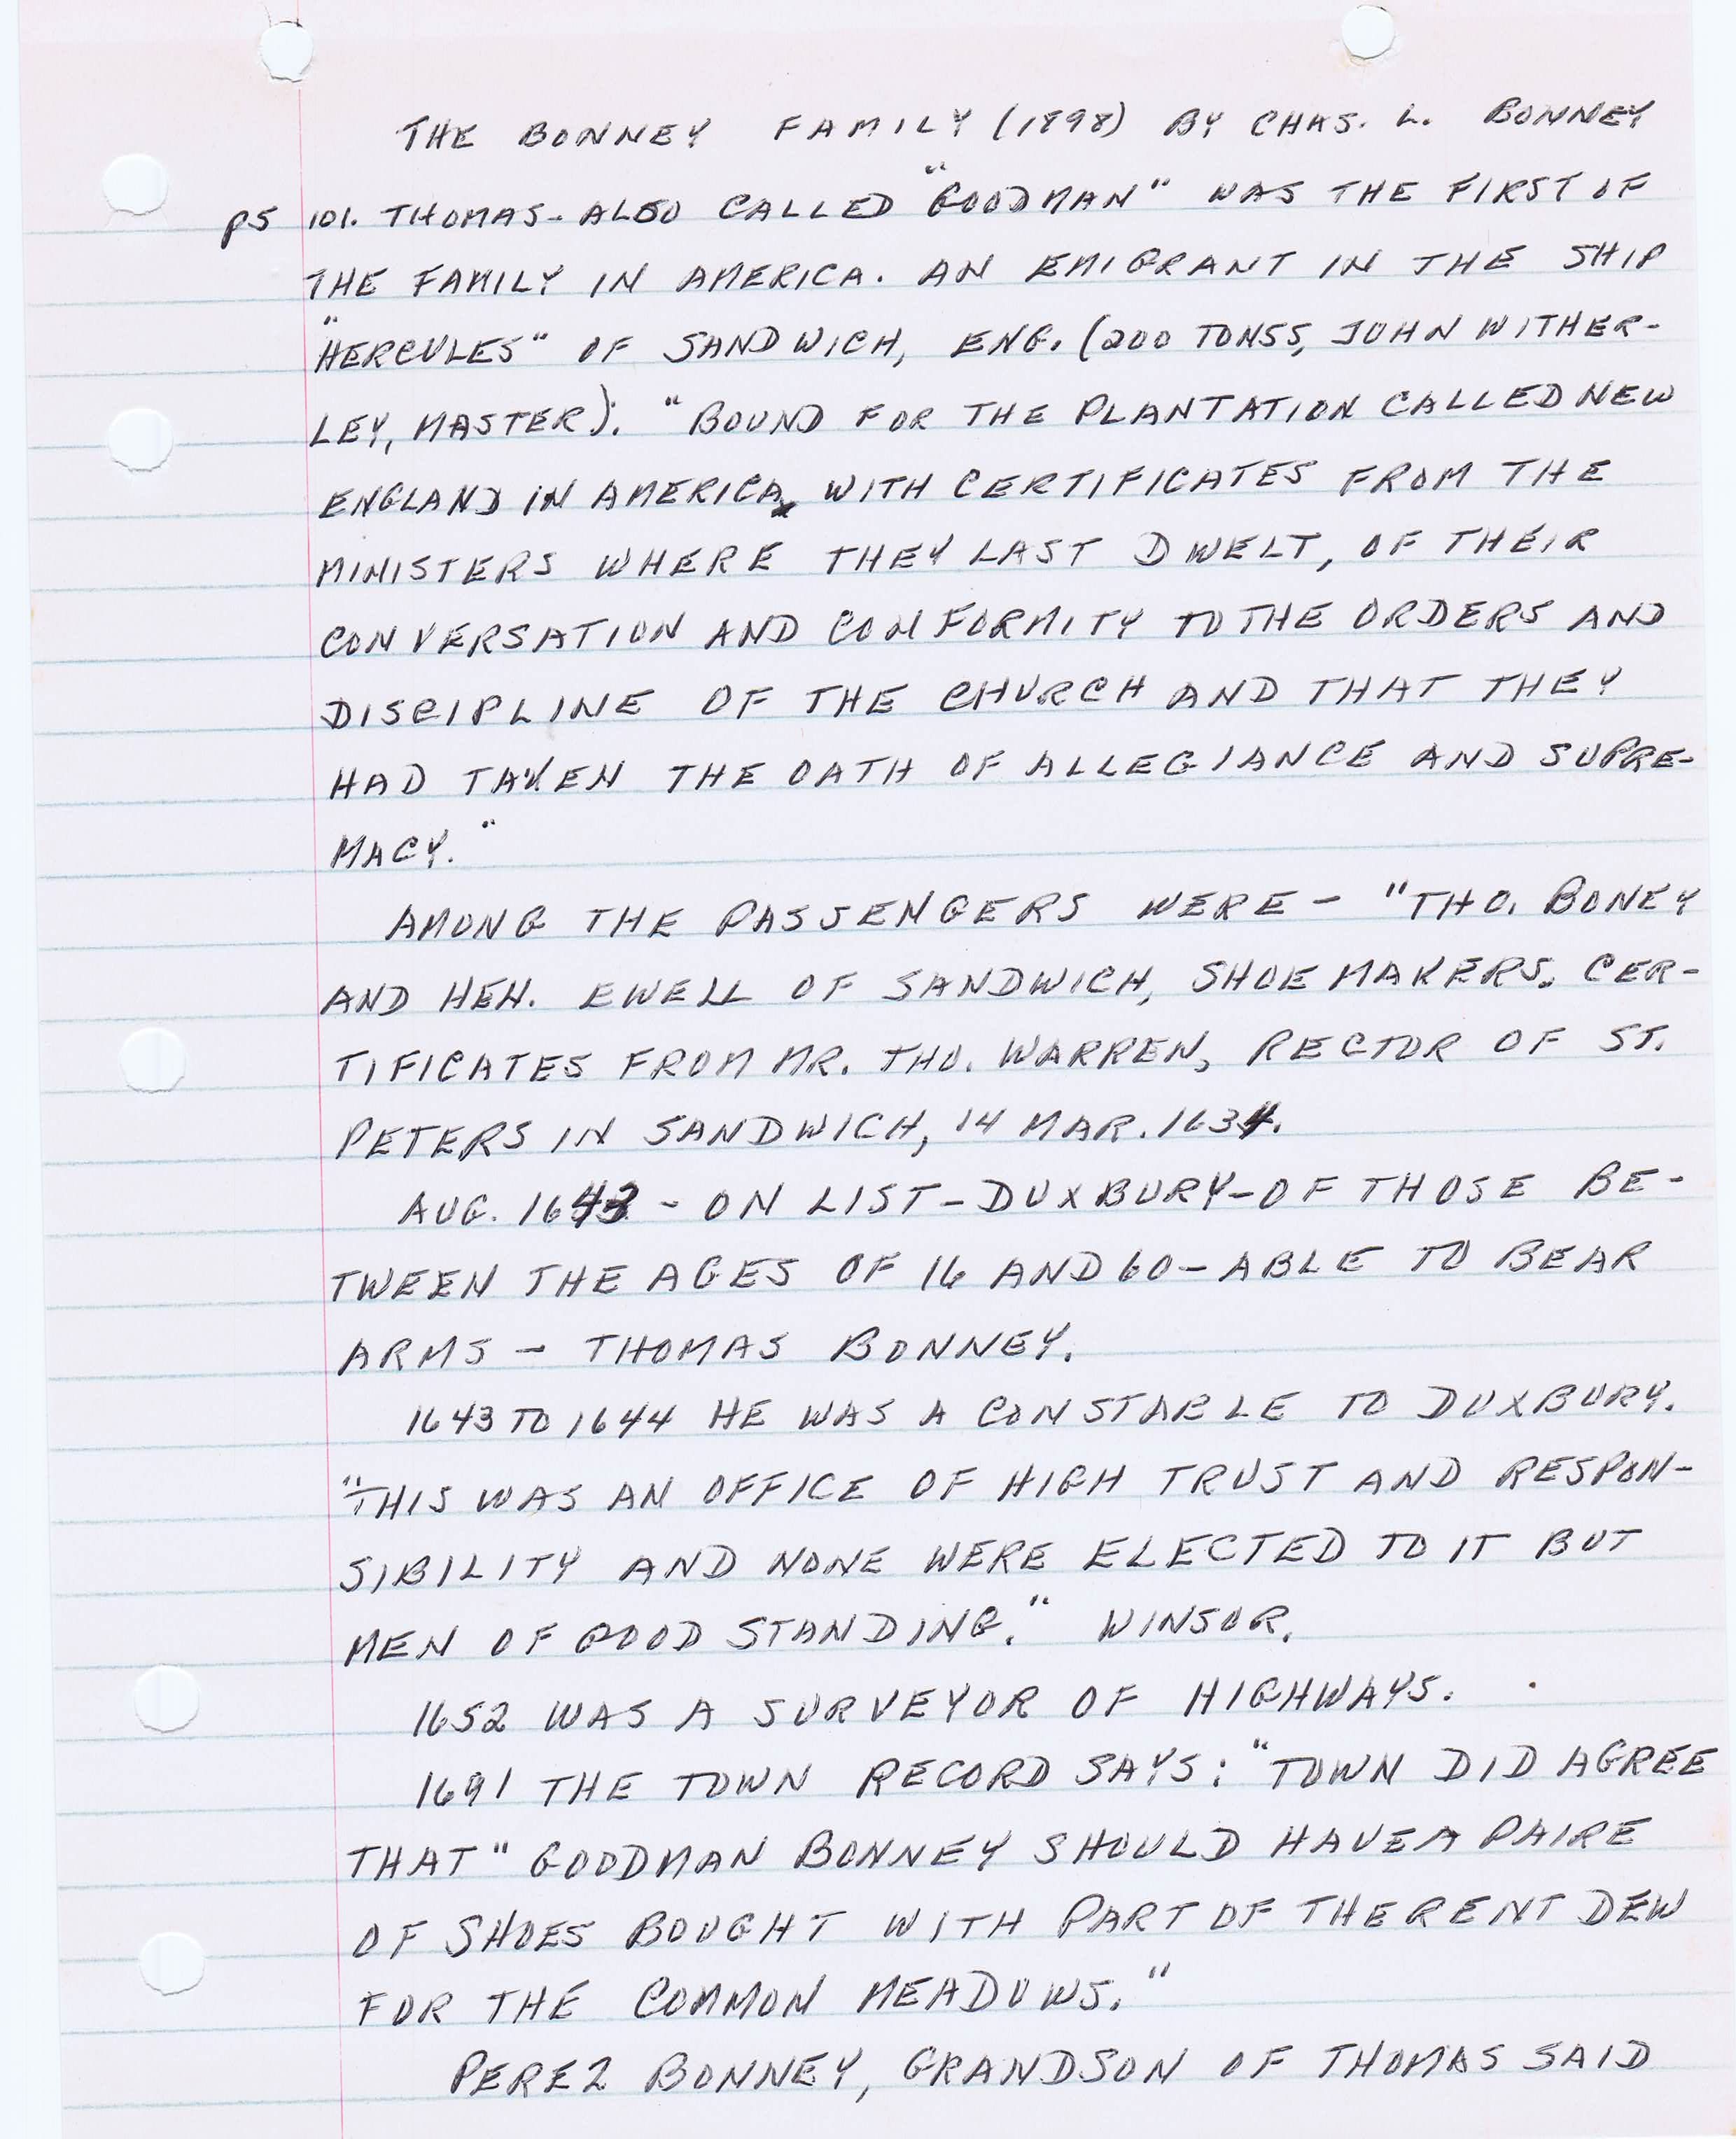 THE BONNEY FAMILY (1898) BY CHAS. L. BONNEY
P5 101. THOMAS- ALSO CALLED "GOODMAN" WAS THE FIRST OF
THE FAMILY IN AMERICA. AN EMIGRANT IN THE SHIP
"HERCULES" OF SANDWICH, ENG. (200 TONSS, JOHN WITHER-
LEY, MASTER). "BOUND FOR THE PLANTATION CALLED NEW
ENGLAND IN AMERICA, WITH CERTIFICATES FROM THE
MINISTERS WHERE THEY LAST DWELT, OF THEIR
CONVERSATION AND CONFORMITY TO THE ORDERS AND
DISCIPLINE OF THE CHURCH AND THAT THEY
HAD TAKEN THE OATH OF ALLEGIANCE AND SUPRE-
MACY."
AMONG THE PASSENGERS WERE - "THO. BONEY
AND HEN. EWELL OF SANDWICH, SHOEMAKERS. CER-
TIFICATES FROM MR. THO. WARREN, RECTOR OF ST.
PETERS IN SANDWICH, 14 MAR. 1634.
AUG. 1643 - ON LIST - DUXBURY - OF THOSE BE-
TWEEN THE AGES OF 16 AND 60 - ABLE TO BEAR
ARMS - THOMAS BONNEY.
1643 TO 1644 HE WAS A CONSTABLE TO DUXBURY.
"THIS WAS AN OFFICE OF HIGH TRUST AND RESPON-
SIBILITY AND NONE WERE ELECTED TO IT BUT
MEN OF GOOD STANDING." WINSOR.
1652 WAS A SURVEYOR OF HIGHWAYS.
1691 THE TOWN RECORD SAYS: "TOWN DID AGREE
THAT" GOODMAN BONNEY SHOULD HAVE A PAIRE
OF SHOES BOUGHT WITH PART OF THE RENT DEW
FOR THE COMMON MEADOWS."
PEREZ BONNEY, GRANDSON OF THOMAS SAID